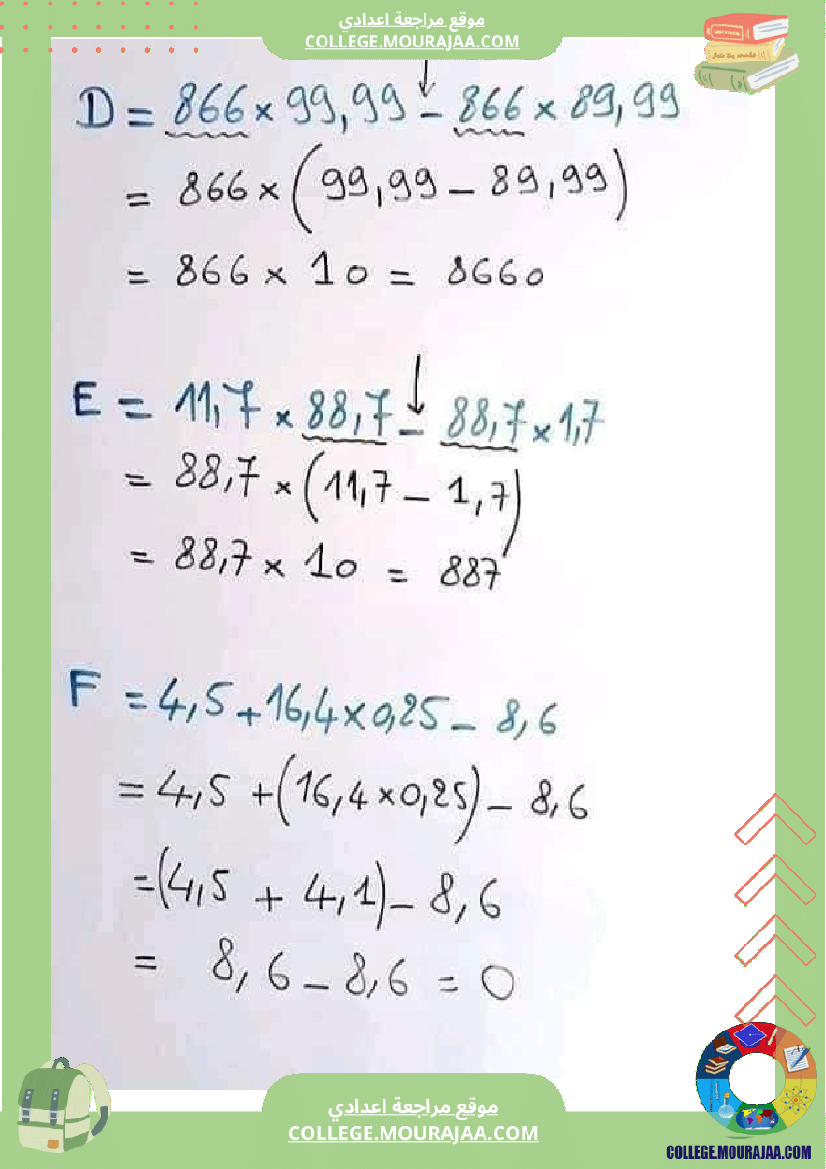 موقع مراجعة اعدادي
COLLEGE.MOURAJAA.COM
D = 866 × 99,99 - 866 × 89,99
= 866 × (99,99 - 89,99)
= 866 × 10 = 8660
E = 11,7 × 88,7 - 88,7 × 1,7
= 88,7 × (11,7 - 1,7)
= 88,7 × 10 = 887
F = 4,5 + 16,4 × 0,25 - 8,6
= 4,5 + (16,4 × 0,25) - 8,6
= (4,5 + 4,1) - 8,6
= 8,6 - 8,6 = 0
موقع مراجعة اعدادي
COLLEGE.MOURAJAA.COM
COLLEGE.MOURAJAA.COM